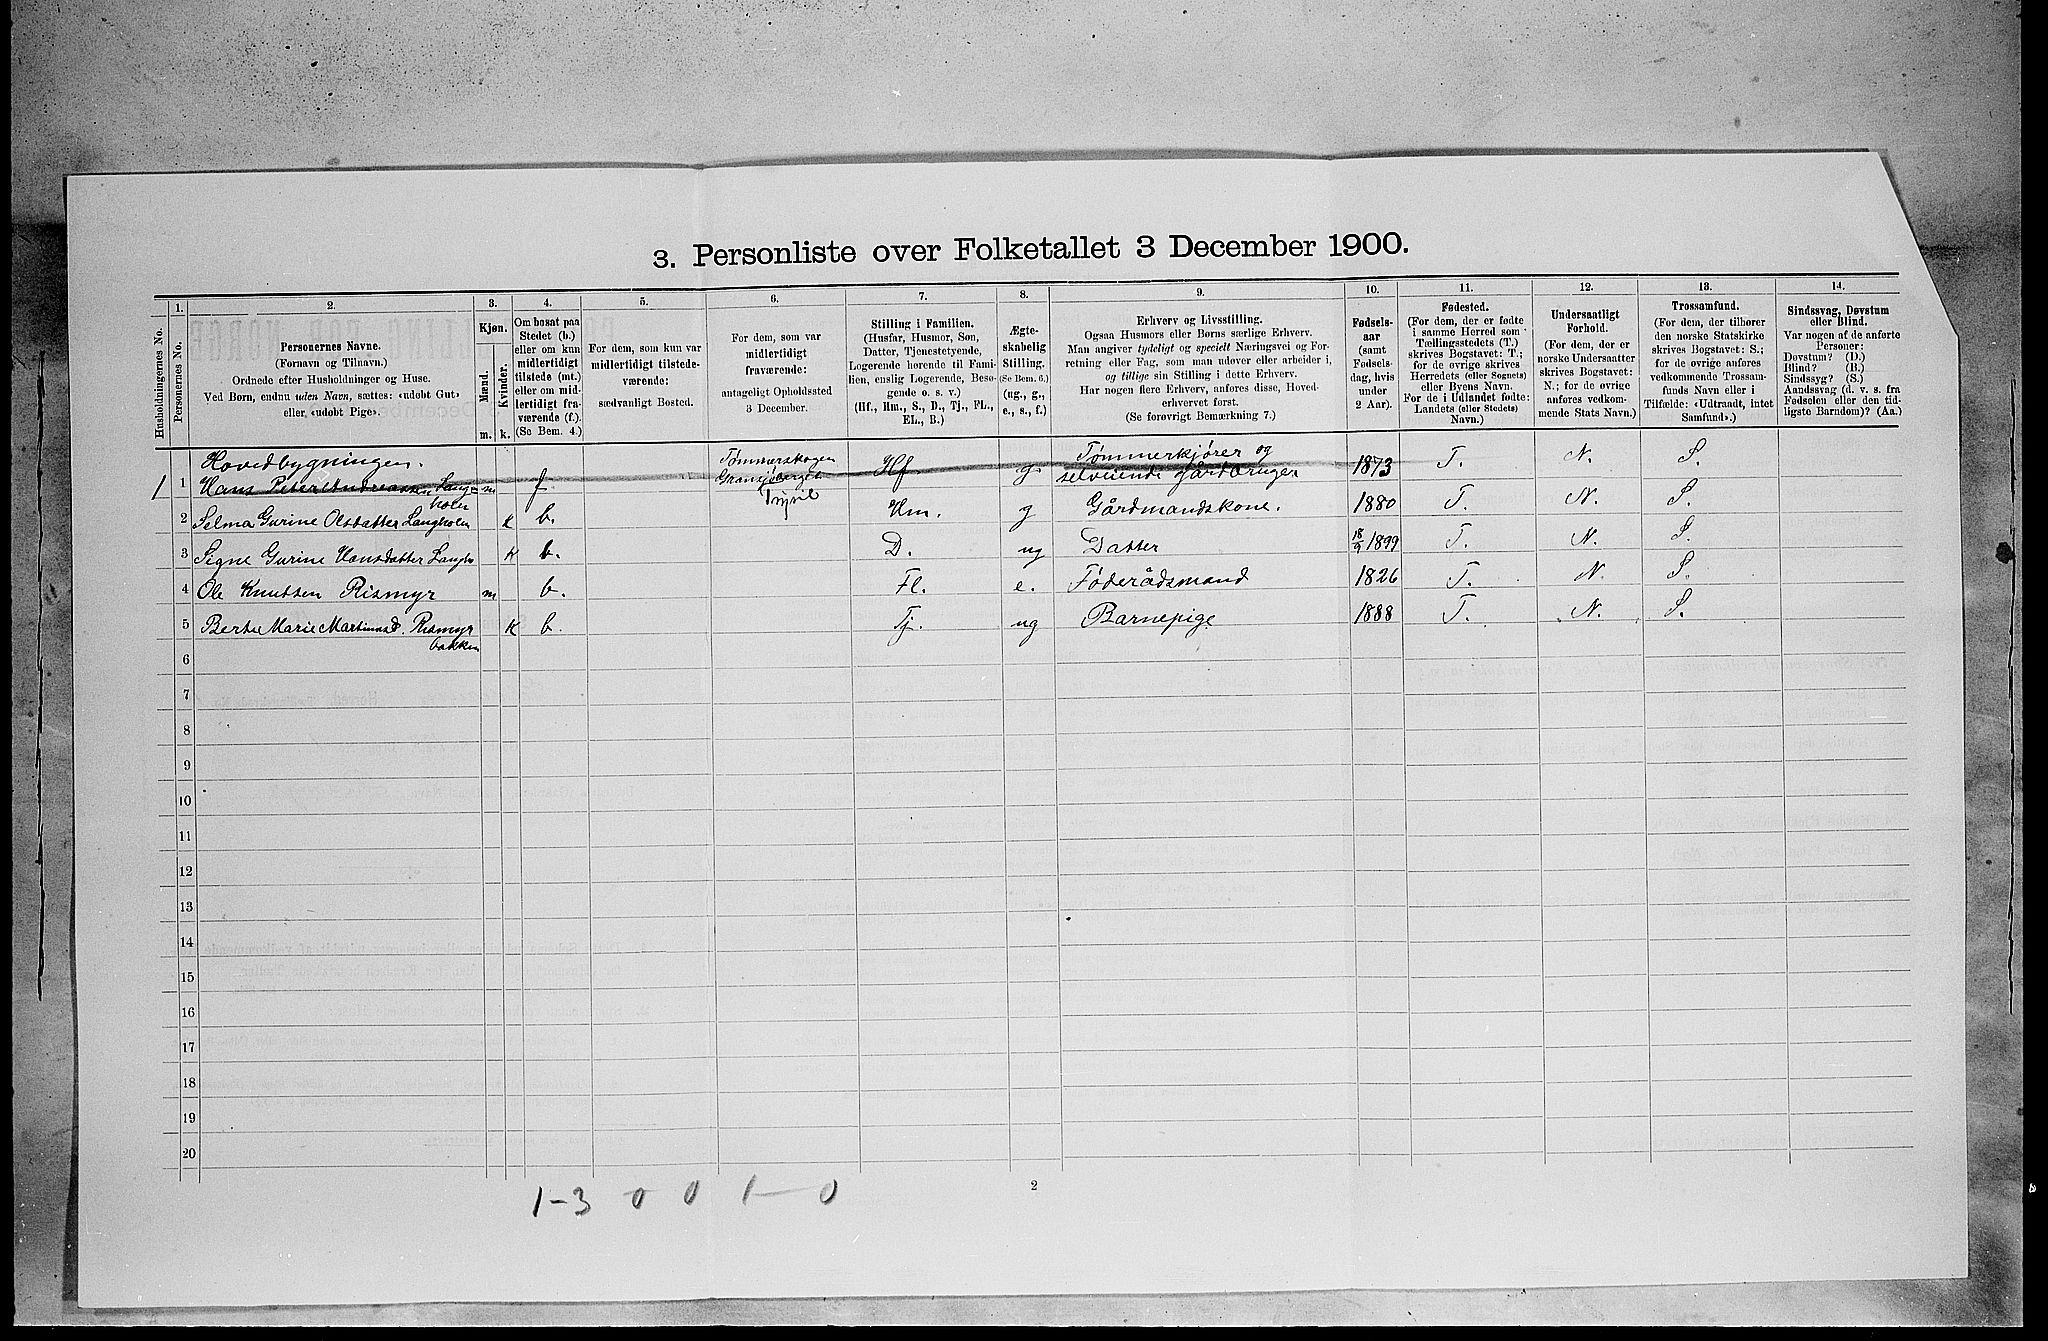 3. Personliste over Folketallet 3 December 1900.
Husholdningernes No.
1.
Personernes No.
2.
Personernes Navne.
(Fornavn og Tilnavn.)
Ordnede efter Husholdninger og Huse.
Ved Børn, endnu uden Navn, sættes: «udøbt Gut»
eller, «udøbt Pige».
3.
Kjøn.
Mænd.
Kvinder.
m.
k.
4.
Om bosat paa
Stedet (b.)
eller om kun
midlertidigt
tilstede (mt.)
eller om mid-
lertidigt fra-
værende (f.).
(Se Bem. 4.)
5.
For dem, som kun var
midlertidigt tilstede-
værende:
sædvanligt Bosted.
6.
For dem, som var
midlertidigt
fraværende:
antageligt Opholdssted
3 December.
7.
Stilling i Familien.
(Husfar, Husmor, Søn,
Datter, Tjenestetyende,
Logerende hørende til Fami-
lien, enslig Logerende, Besø-
gende o. s. v.)
(Hf., Hm., S., D., Tj., FL.,
EL., B.)
8.
Ægte-
skabelig
Stilling.
(Se Bem. 6.)
(ug., g.,
e., s., f.)
9.
Erhverv og Livsstilling.
Ogsaa Husmors eller Børns særlige Erhverv.
Man angiver tydeligt og specielt Næringsvei og For-
retning eller Fag, som man udøver eller arbeider i,
og tillige sin Stilling i dette Erhverv.
Har nogen flere Erhverv, anføres disse, Hoved-
erhvervet først.
(Se forøvrigt Bemærkning 7.)
10.
Fødsels-
aar
(samt
Fødsels-
dag, hvis
under
2 Aar).
11.
Fødested.
(For dem, der er fødte
i samme Herred som
Tællingsstedets (T.)
skrives Bogstavet: T.;
for de øvrige skrives
Herredets (eller Sognets)
eller Byens Navn.
For de i Udlandet fødte:
Landets (eller Stedets)
Navn.)
12.
Undersaatligt
Forhold.
(For dem, der er
norske Undersaatter
skrives Bogstavet:
N.; for de øvrige
anføres vedkom-
mende Stats Navn.)
13.
Trossamfund.
(For dem, der tilhører
den norske Statskirke
skrives Bogstavet: S.;
for de øvrige anføres
vedkommende Trossam-
funds Navn eller i
Tilfælde: «Udtraadt, intet
Samfund».)
14.
Sindssvag, Døvstum
eller Blind.
Var nogen af de anførte
Personer:
Døvstum? (D.)
Blind? (B.)
Sindssyg? (S.)
Aandssvag (d. v. s. fra
Fødselen eller den tid-
ligste Barndom)? (Aa.)
Hovedbygningen.
1 1 Hans Peter Andreassen Lang- m f. Tømmerskogen Hf g. Tømmerkjører og 1873 T. N. S.
holm Trysil selveiende gårdbruger
2 Selma Gurine Olsdatter Langholm k b. Hm. g Gårdmandskone. 1880 T. N. S.
3 Signe Gurine Hansdatter Langho k b. D. ug Datter 18/9 1899 T. N. S.
4 Ole Knutsen Rismyr m b. Fl. e. Føderådsmand 1826 T. N. S.
5 Berte Marie Martinusd. Rismyr k b. Tj. ug Barnepige 1888 T. N. S.
bakken
6
7
8
9
10
11
12
13
14
15
16
17
18
19
20
1-3 0 0 1-0
2